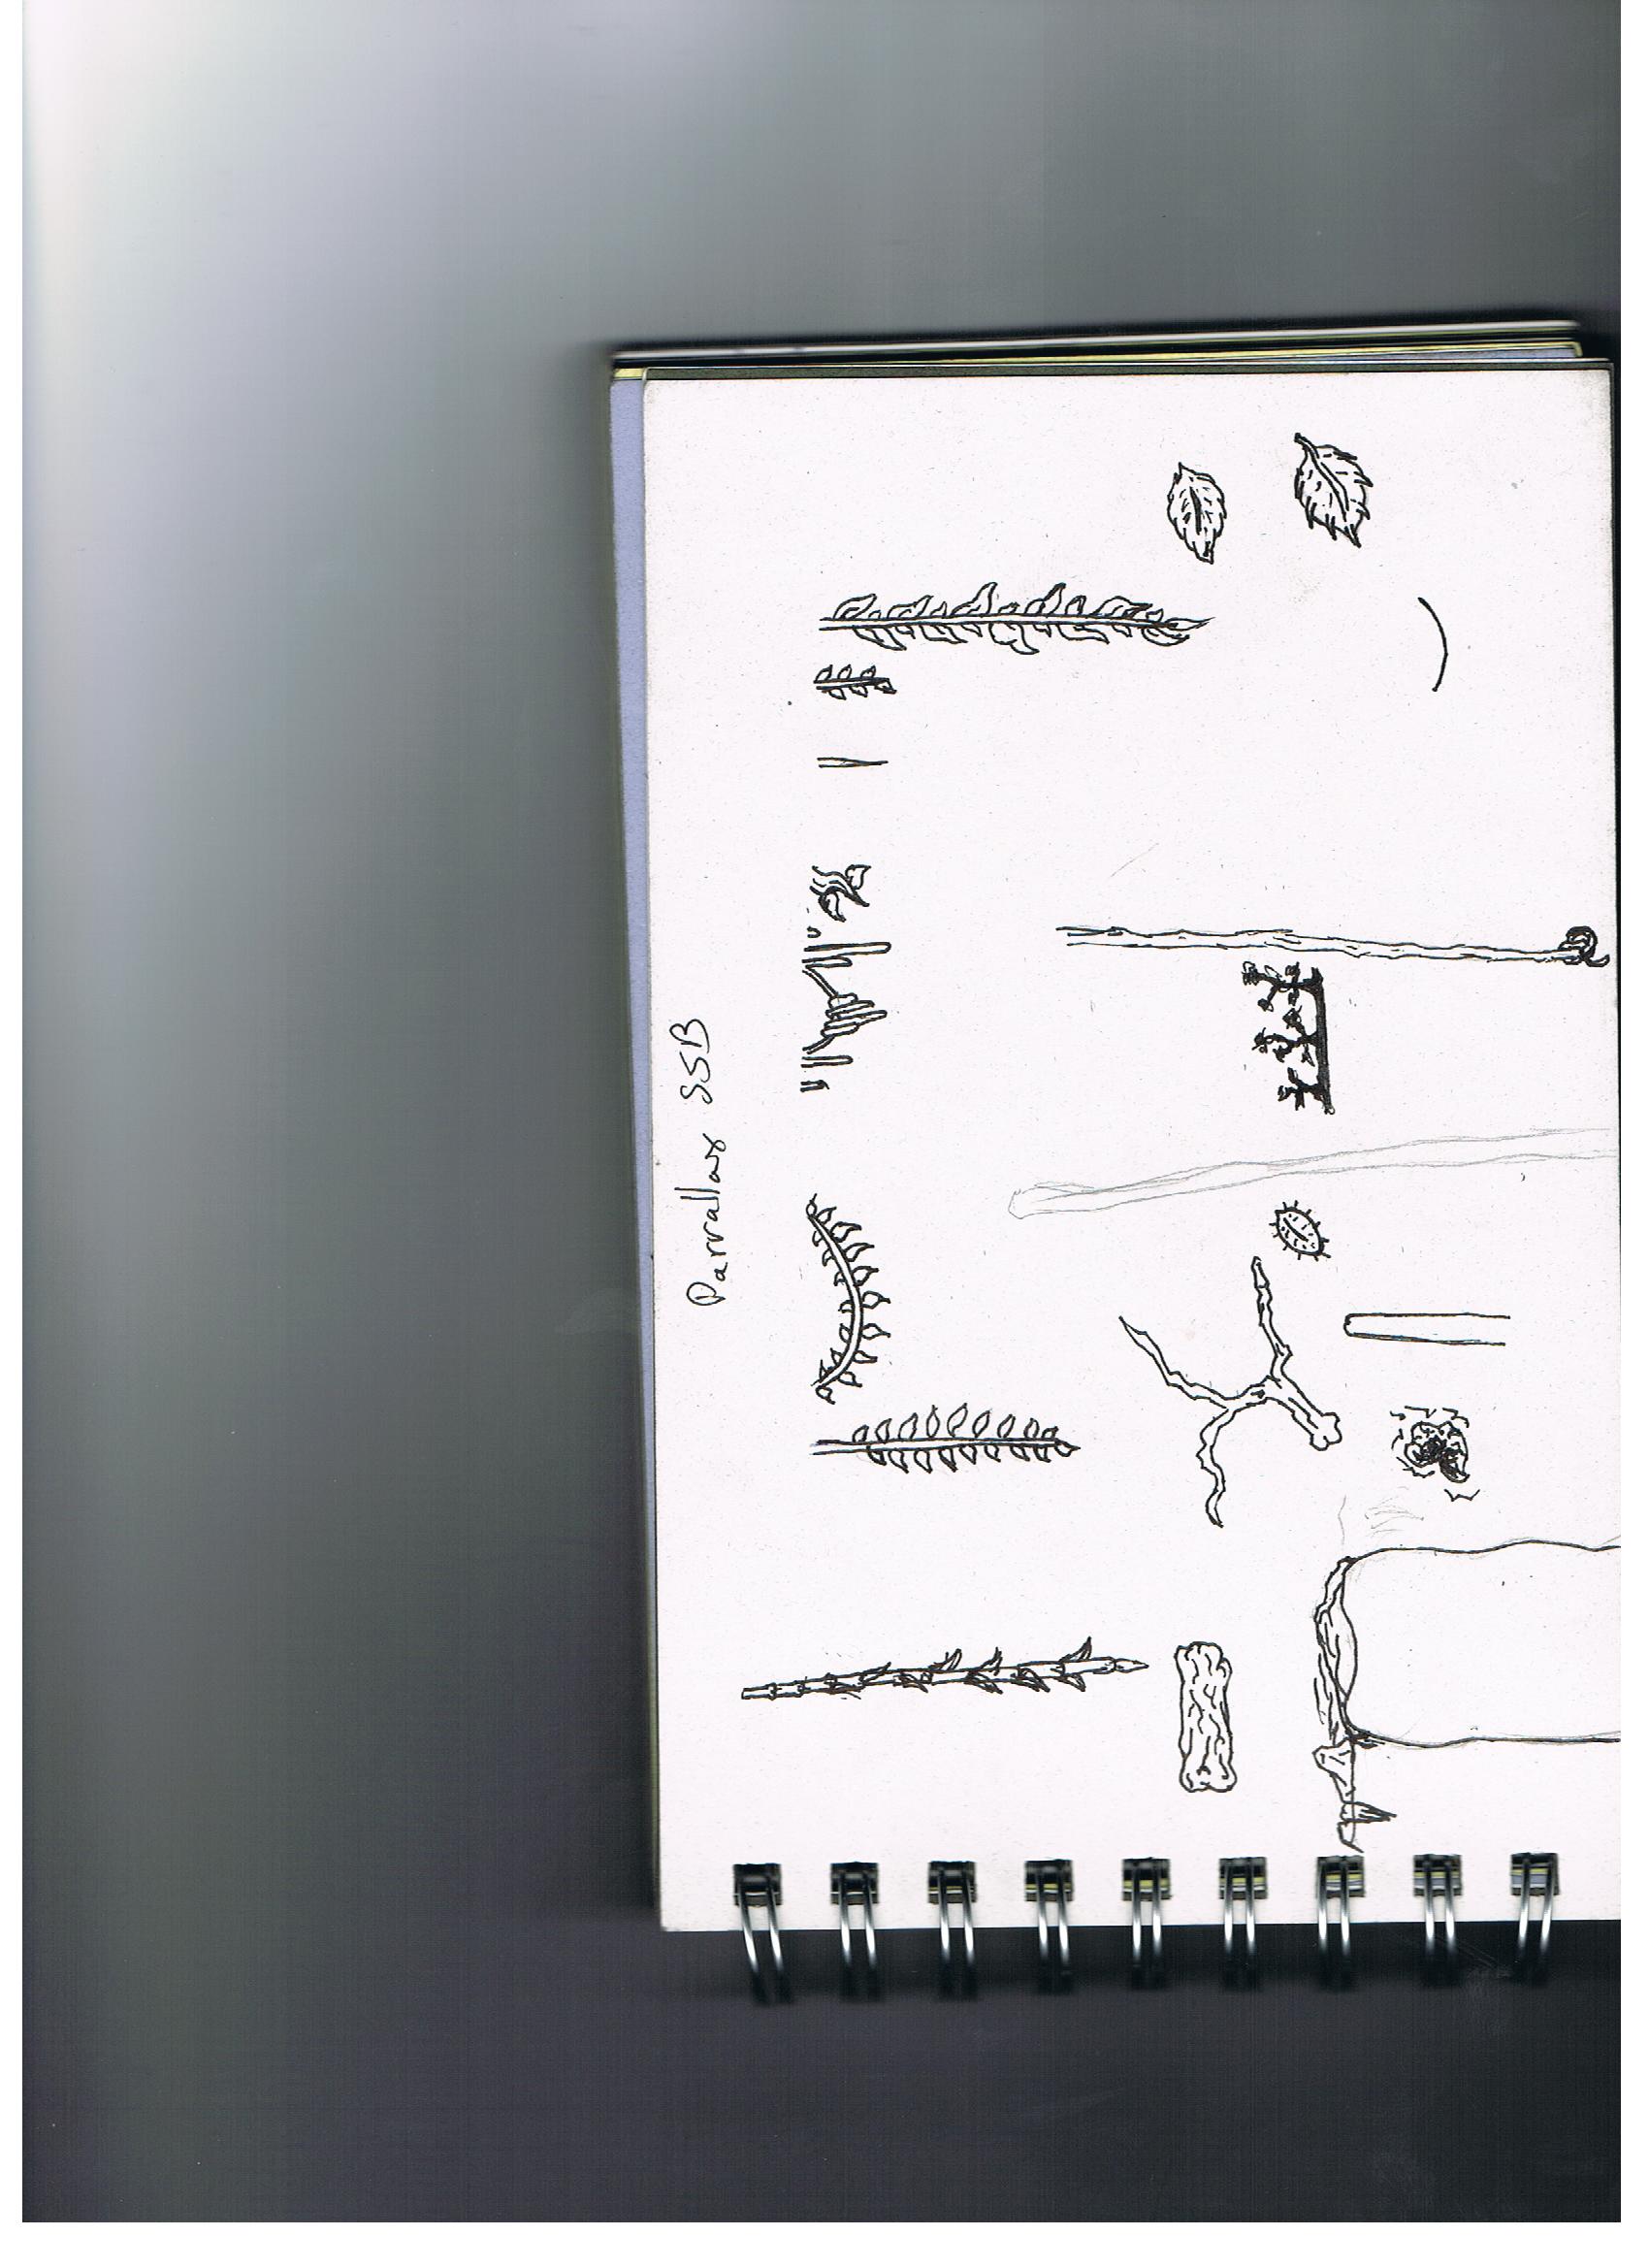 Parrallax SSB